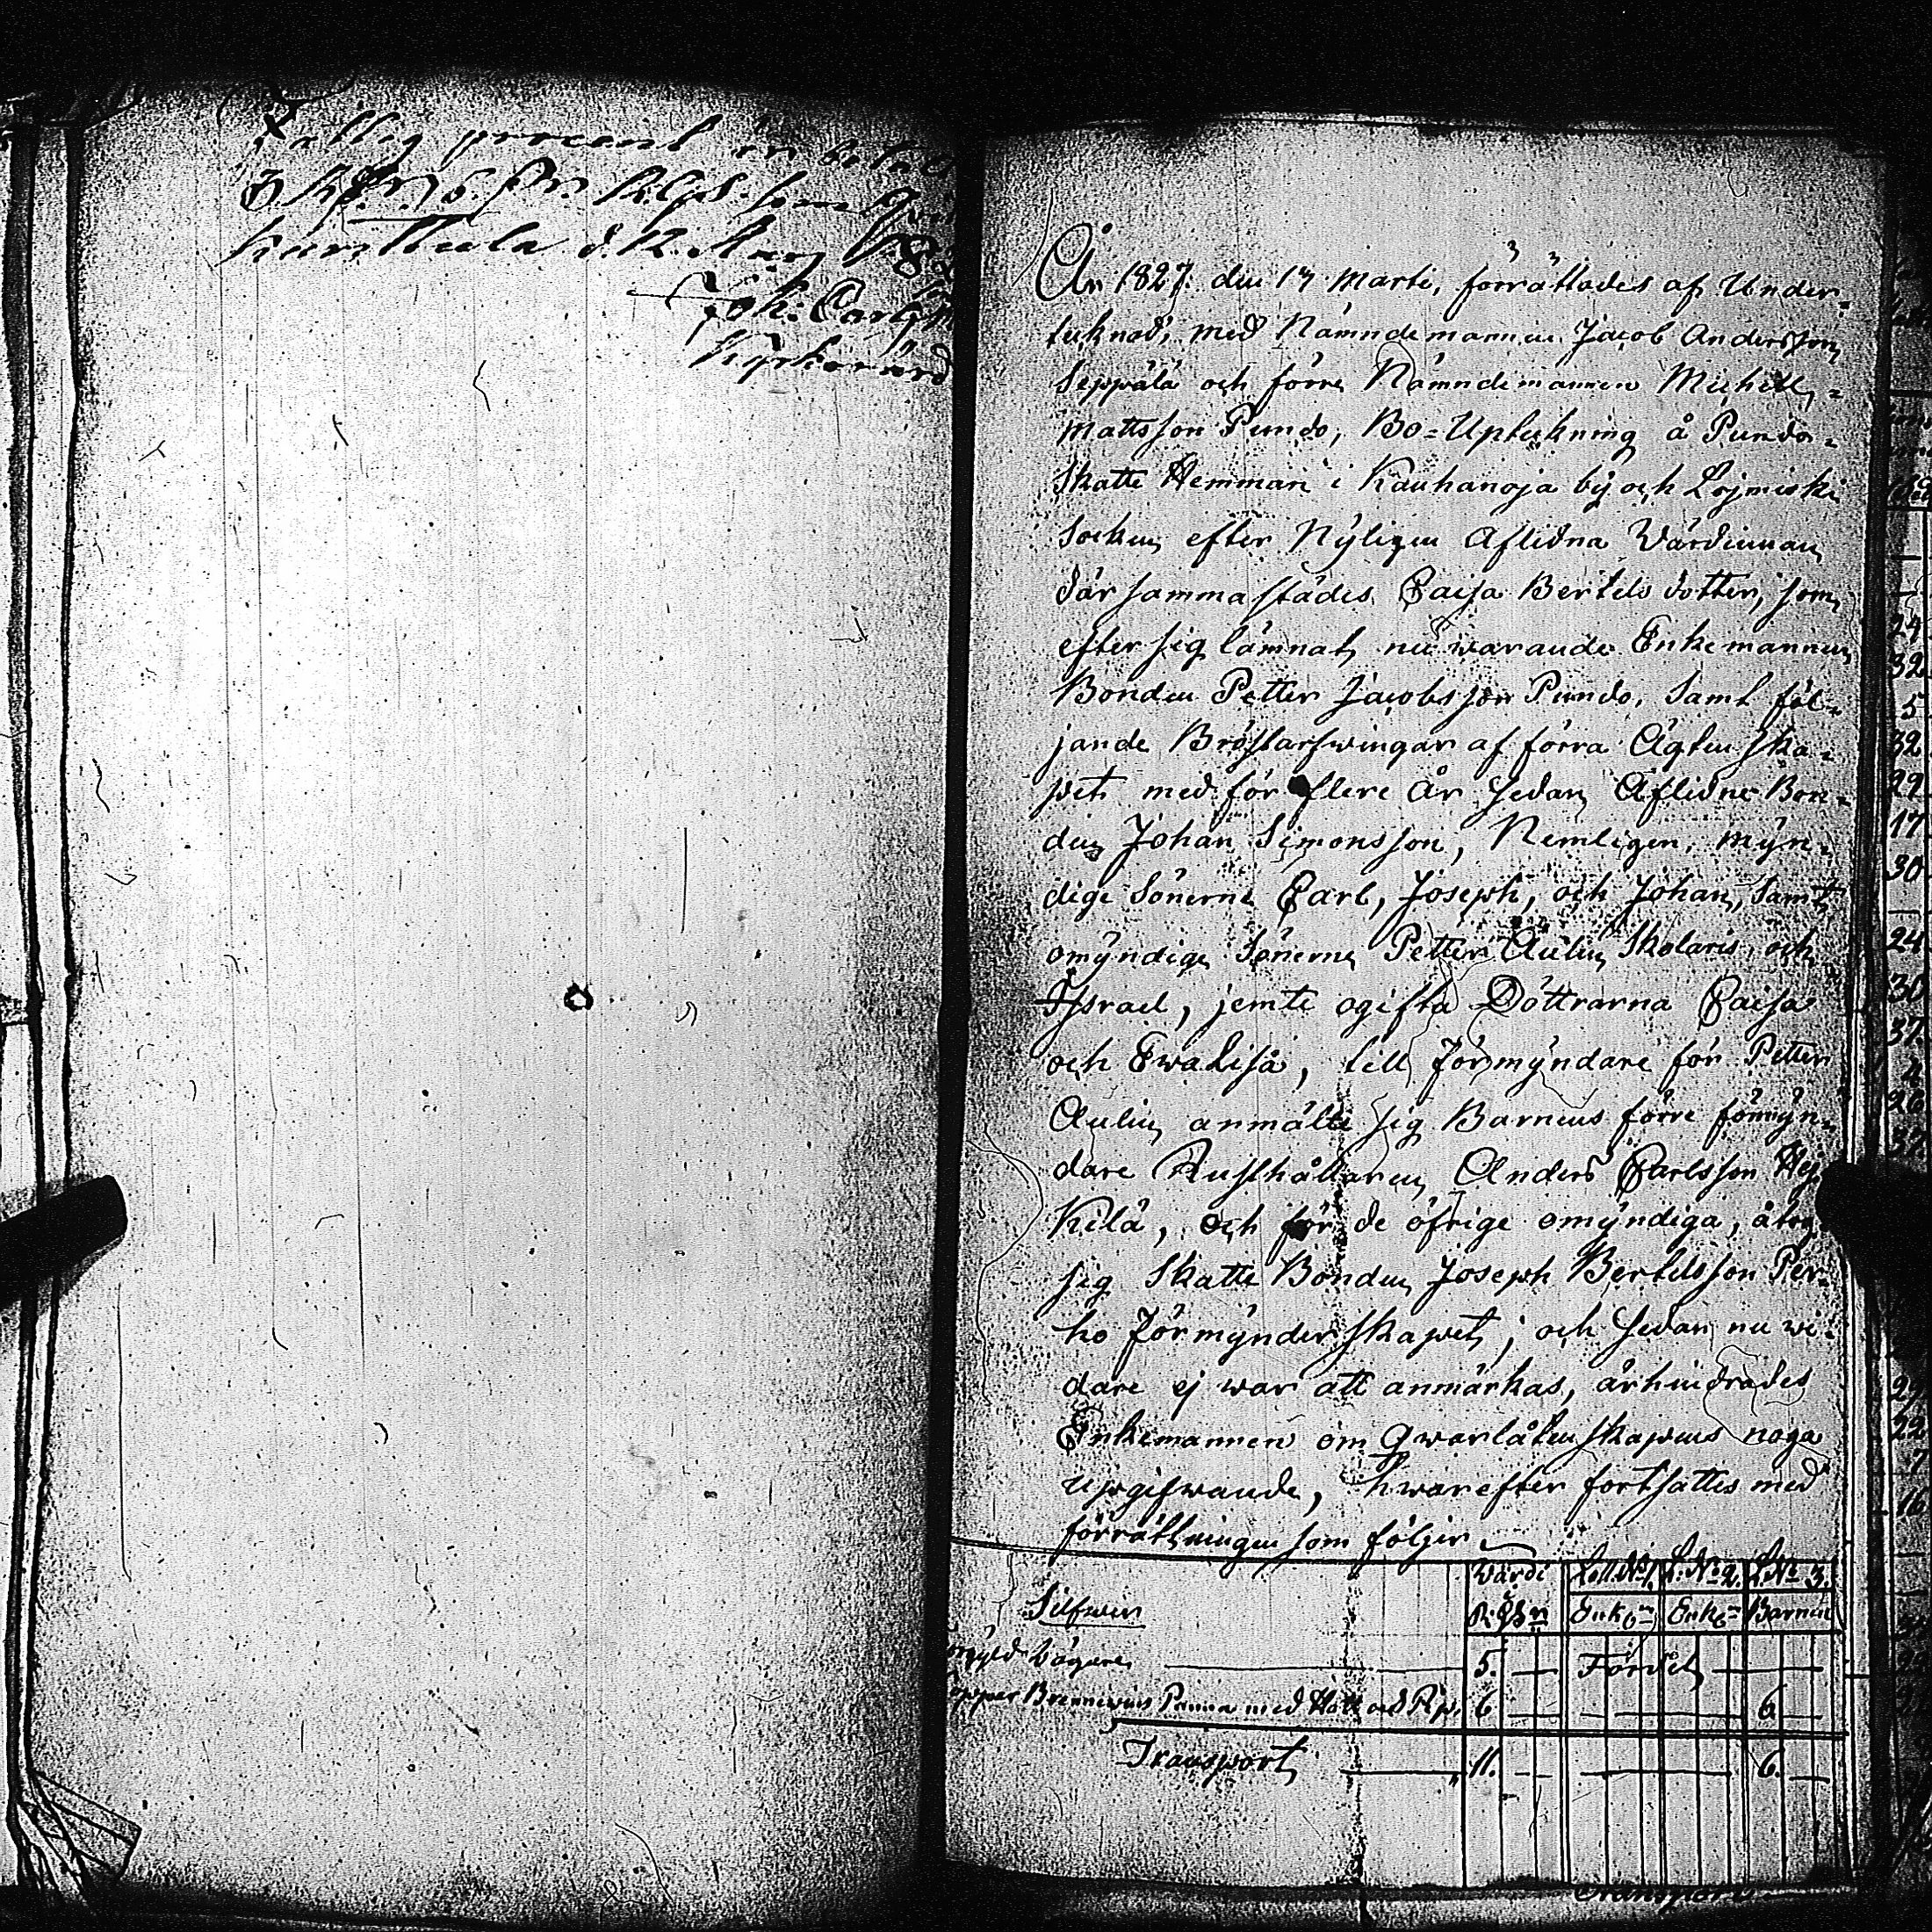 Fattig procent är betalt
3 R. 5. Kps. som Qvit
härifula d. 12. May 182
Joh: Carls
Kyrkovärd
År 1827. den 17 Marti, förrättades af Under-
teknad, med Nämndemannen Jacob Andersson
Seppälä och förre Nämndemannen Michell
Mattsson Pundo, Bo-Uptekning å Pundo-
Skatte Hemman i Kauhanoja by och Lojmioki
Socken, efter Nyligen Aflidna Värdinnan
därsammastädes Caisa Bertels dotter, som
efter sig lämnat, nu warande Enkemannen
Bonden Petter Jacobsson Pundo, Samt föl-
jande Bröstarfwingar af förra Ägtenska-
pet med för flere År Sedan Aflidne Bon-
den Johan Simonsson, Nemligen, myn-
dige Sönerne Carl, Joseph, och Johan, Samt
omyndige Sönerne Petter Aulin Skolaris, och
Israel, jemte ogifta Döttrarna Caisa
och Ewa Lisa, till Förmyndare för Petter
Aulin anmälte sig Barnens förre förmyn-
dare Rusthållaren Anders Carlsson Hej
Kilä, och för de öfrige omyndiga, åtog
sig Skatte Bonden Joseph Bertelsson Per-
ho Förmynderskapet; och Sedan nu wi-
dare ej war att anmärkas, århindrades
Enkemannen om Qwarlåtenskapens noga
upgifwande, hwarefter fortsattes med
förrättningen som följer
Wärde Lott No 1. L. No 2. L. No 3.
Silfwer R. Enke Enke Barnen
myld Bägare 5. — Fördel —
opper Brennewins Panna med Hatt och Pip. 6 — — 6 —
Transport 11. — — 6. —